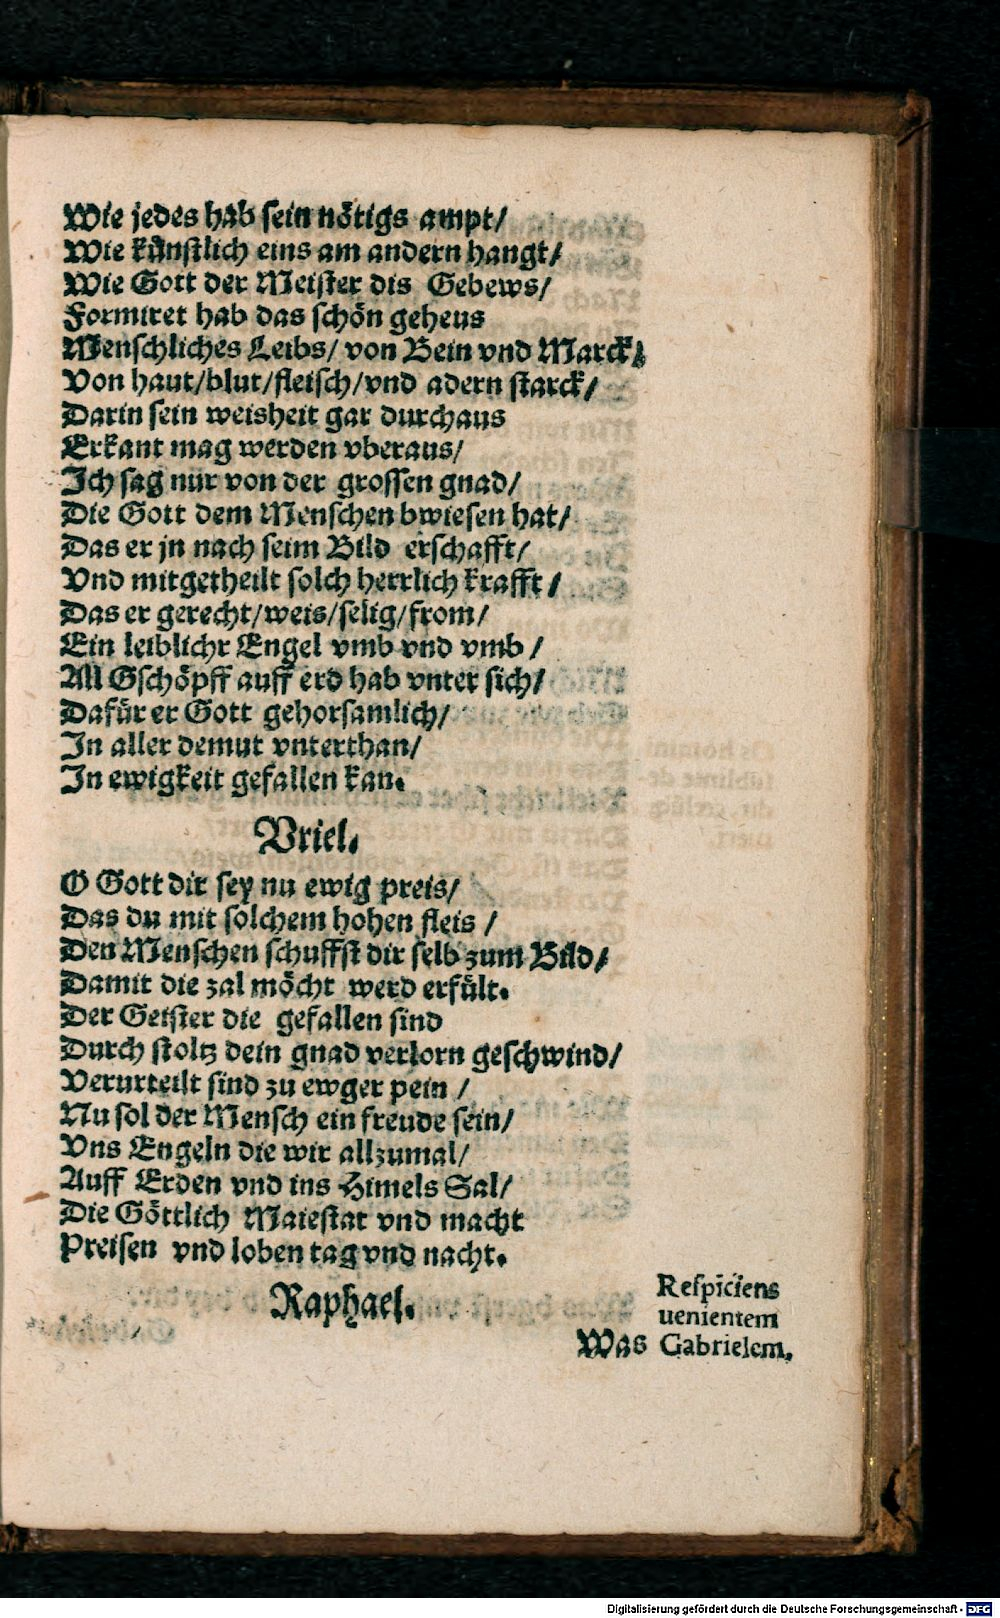 Wie jedes hab sein nötigs ampt/
Wie künstlich eins am andern hangt/
Wie Gott der Meister dis Gebews/
Formiret hab das schön geheus
Menschliches Leibs/ von Bein vnd Marck/
Von haut/blut/fleisch/vnd adern starck/
Darin sein weisheit gar durchaus
Erkant mag werden vberaus/
Ich sag nür von der grossen gnad/
Die Gott dem Menschen bwiesen hat/
Das er jn nach seim Bild erschafft/
Vnd mitgetheilt solch herrlich krafft/
Das er gerecht/weis/selig/from/
Ein leiblichr Engel vmb vnd vmb/
All Gschöpff auff erd hab vnter sich/
Dafür er Gott gehorsamlich/
In aller demut vnterthan/
In ewigkeit gefallen kan.
Vriel.
O Gott dir sey nu ewig preis/
Das du mit solchem hohen fleis/
Den Menschen schuffst dir selb zum Bild/
Damit die zal möcht werd erfült.
Der Geister die gefallen sind
Durch stoltz dein gnad verlorn geschwind/
Verurteilt sind zu ewger pein/
Nu sol der Mensch ein freude sein/
Vns Engeln die wir allzumal/
Auff Erden vnd ins Himels Sal/
Die Göttlich Maiestat vnd macht
Preisen vnd loben tag vnd nacht.
Raphael.
Respiciens
uenientem
Gabrielem.
Was
Digitalisierung gefördert durch die Deutsche Forschungsgemeinschaft - DFG